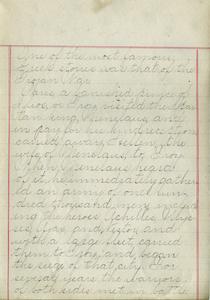 One of the most famous
Greek stories was that of the
Trojan War.
Paris, a banished prince of
Troy, visited the Spar
tan king, Menelaus, and
in pay for his kindness Paris
carried away Helen, the
wife of Menelaus, to Troy.
When Menelaus heard
of it he immediately gather
ed an army of one hun
dred thousand men, includ
ing the heroes Achilles, Ulys
ses, Ajax, and Nestor, and
with a large fleet, carried
them to Troy, and began
the siege of that city. For
several years the warriors
of both sides met in battle